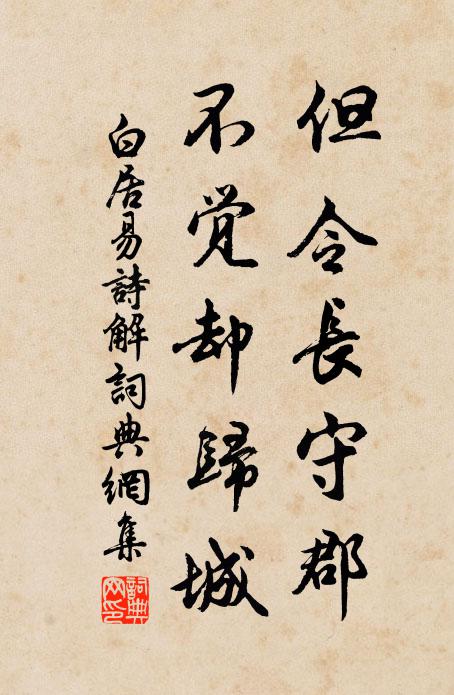 但令長守郡
不覚却歸城
白居易詩解詞典網集
詞典
网印